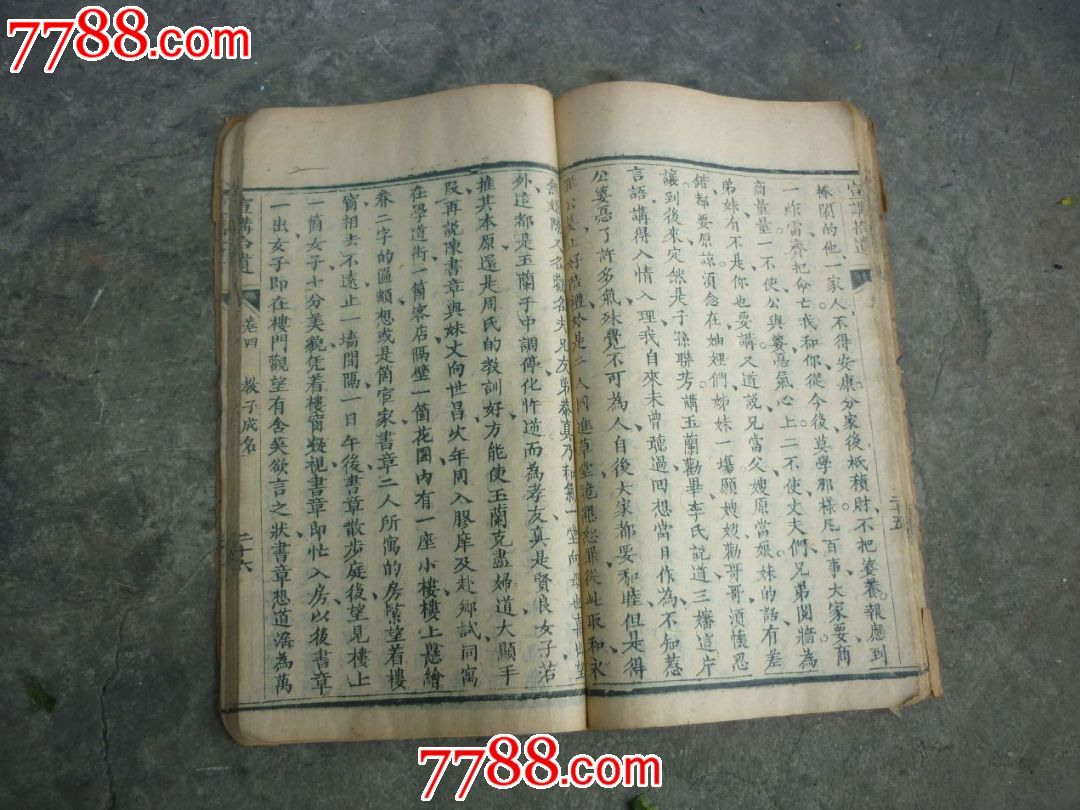 7788.com
7788.com
宣講拾遺
二十五
棒鬧的他一家人不得安康分家後柢積財不把婆養報應到
一炸雷齊把命亡我和你從今後莫學那樣凡百事大家要商
商量量一不使公與婆慪氣心上二不使丈夫們兄弟鬩牆為
弟妹有不是你也要講又道說兄當父嫂原當娘妹的話有差
錯都要原諒須念在妯娌們姊妹一場願嫂嫂勸哥哥須懷忍
讓到後來定然是子孫聯芳講玉蘭勸畢李氏說道三嬸這片
言語講得入情入理我自來未曾聽過回想當日作為不知惹
公婆慪了許多氣殊覺不可為人自後大家都要和睦但是得
於是二人同進草堂跪懇恕罪從此取和永
一堂
外這都是玉蘭于中調停化忤逆而為孝友真是賢良女子若
推其本原還是周氏的教訓好方能使玉蘭克盡婦道大顯手
段再說陳書章與妹丈向世昌次年同入膠庠及赴鄉試同寓
在學道街一箇客店隔壁一箇花園內有一座小樓樓上懸繪
卷二字的區額想或是箇宦家書章二人所寓的房緊望着樓
窗相去不遠止一墻間隔一日午後書章散步庭後望見樓上
一箇女子十分美貌凭着樓窗凝視書章即忙入房以後書章
一出女子即在樓門觀望有含笑欲言之狀書章想道淫為萬
宣講拾遺
卷四
教子成名
二十六
7788.com